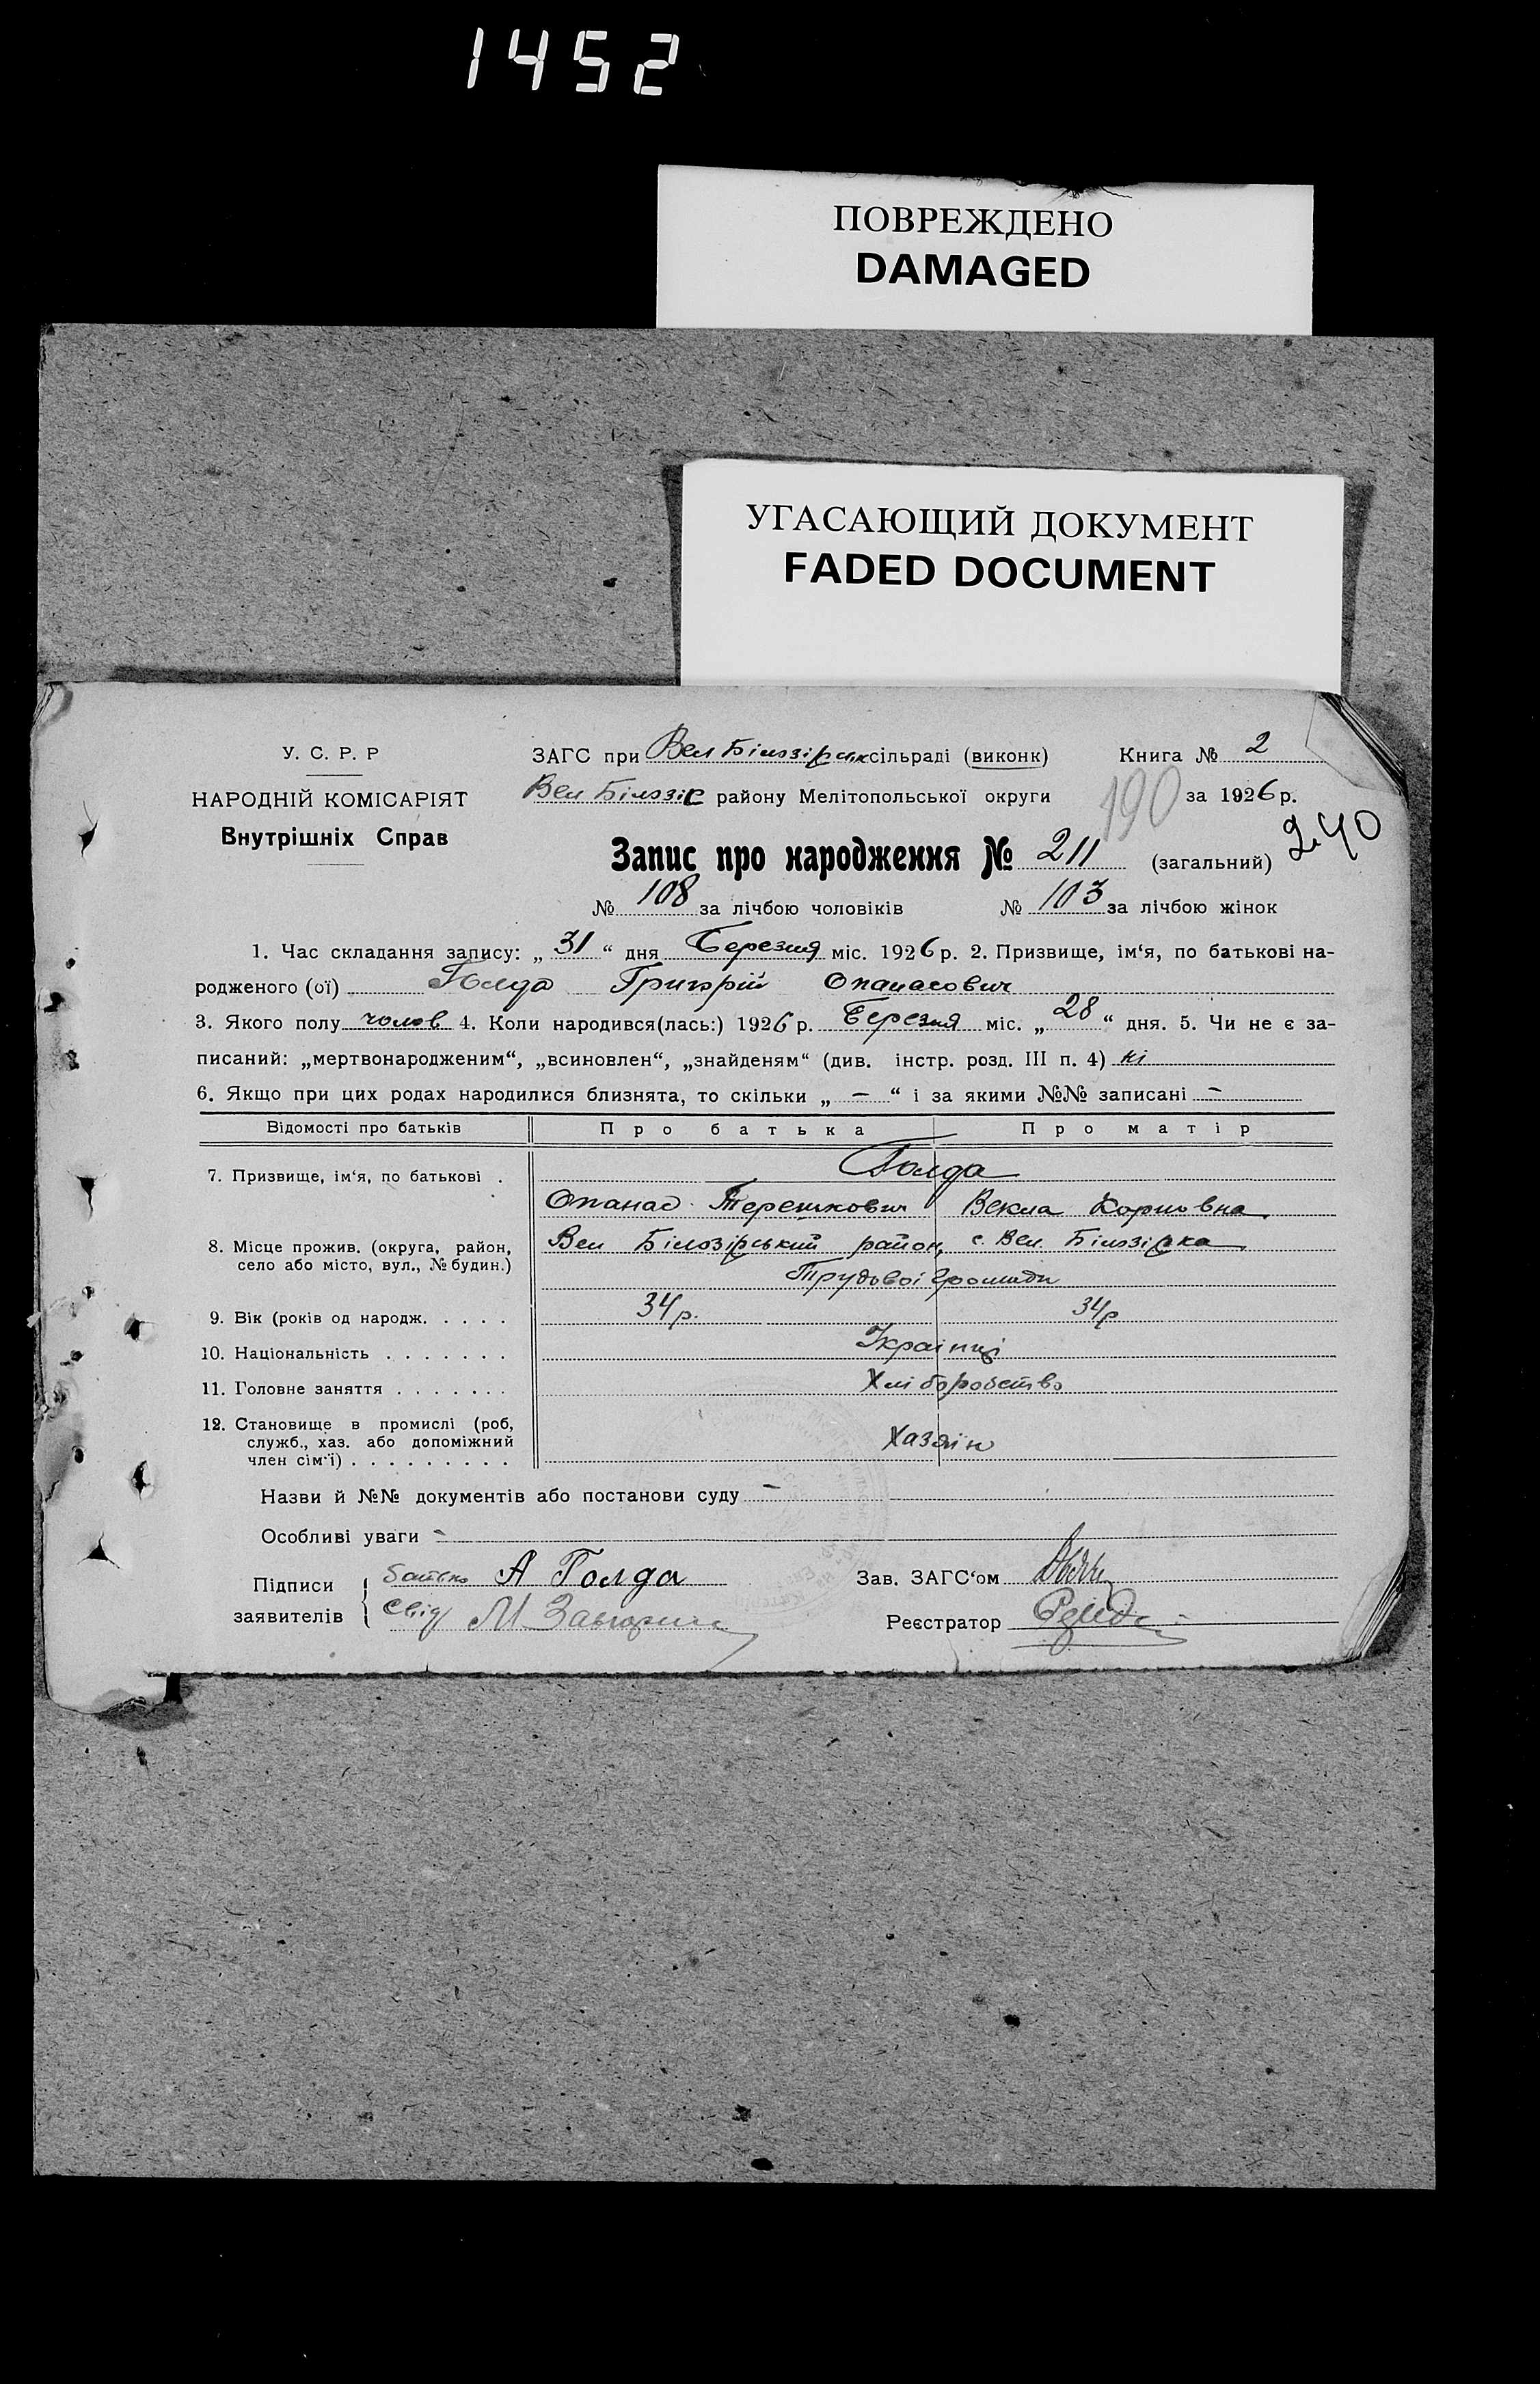 1452
ПОВРЕЖДЕНО
DAMAGED
УГАСАЮЩИЙ ДОКУМЕНТ
FADED DOCUMENT
У. С. Р. Р
НАРОДНІЙ КОМІСАРІЯТ
Внутрішніх Справ
ЗАГС при Вел Білозірськ сільраді (виконк) Книга № 2
Вел Білозір району Мелітопольської округи 190 за 1926 р.
240
Запис про народження № 211 (загальний)
№ 108 за лічбою чоловіків № 103 за лічбою жінок
1. Час складання запису: „ 31 “ дня Березня міс. 1926 р. 2. Призвище, ім‘я, по батькові на-
родженого (ої) Голда Григорій Опанасович
3. Якого полу чолов 4. Коли народився(лась:) 1926 р. Березня міс. „ 28 “ дня. 5. Чи не є за-
писаний: „мертвонародженим“, „всиновлен“, „знайденям“ (див. інстр. розд. III п. 4) ні
6. Якщо при цих родах народилися близнята, то скільки „ – “ і за якими №№ записані –
Відомості про батьків Про батька Про матір
7. Призвище, ім‘я, по батькові . Голда
Опанас Терешкович Векла Корповна
8. Місце прожив. (округа, район, село або місто, вул., № будин.) Вел Білозірський район, с. Вел. Білозірка
Трудової Громади
9. Вік (років од народж. . . . . 34 р. 34 р
10. Національність . . . . . . . Українці
11. Головне заняття . . . . . . . Хліборобство
12. Становище в промислі (роб, служб., хаз. або допоміжний член сім‘ї) . . . . . . . . . Хазяін
Назви й №№ документів або постанови суду –
Особливі уваги –
Підписи заявителів { батько А Голда
свід М
Зав. ЗАГС‘ом
Реєстратор